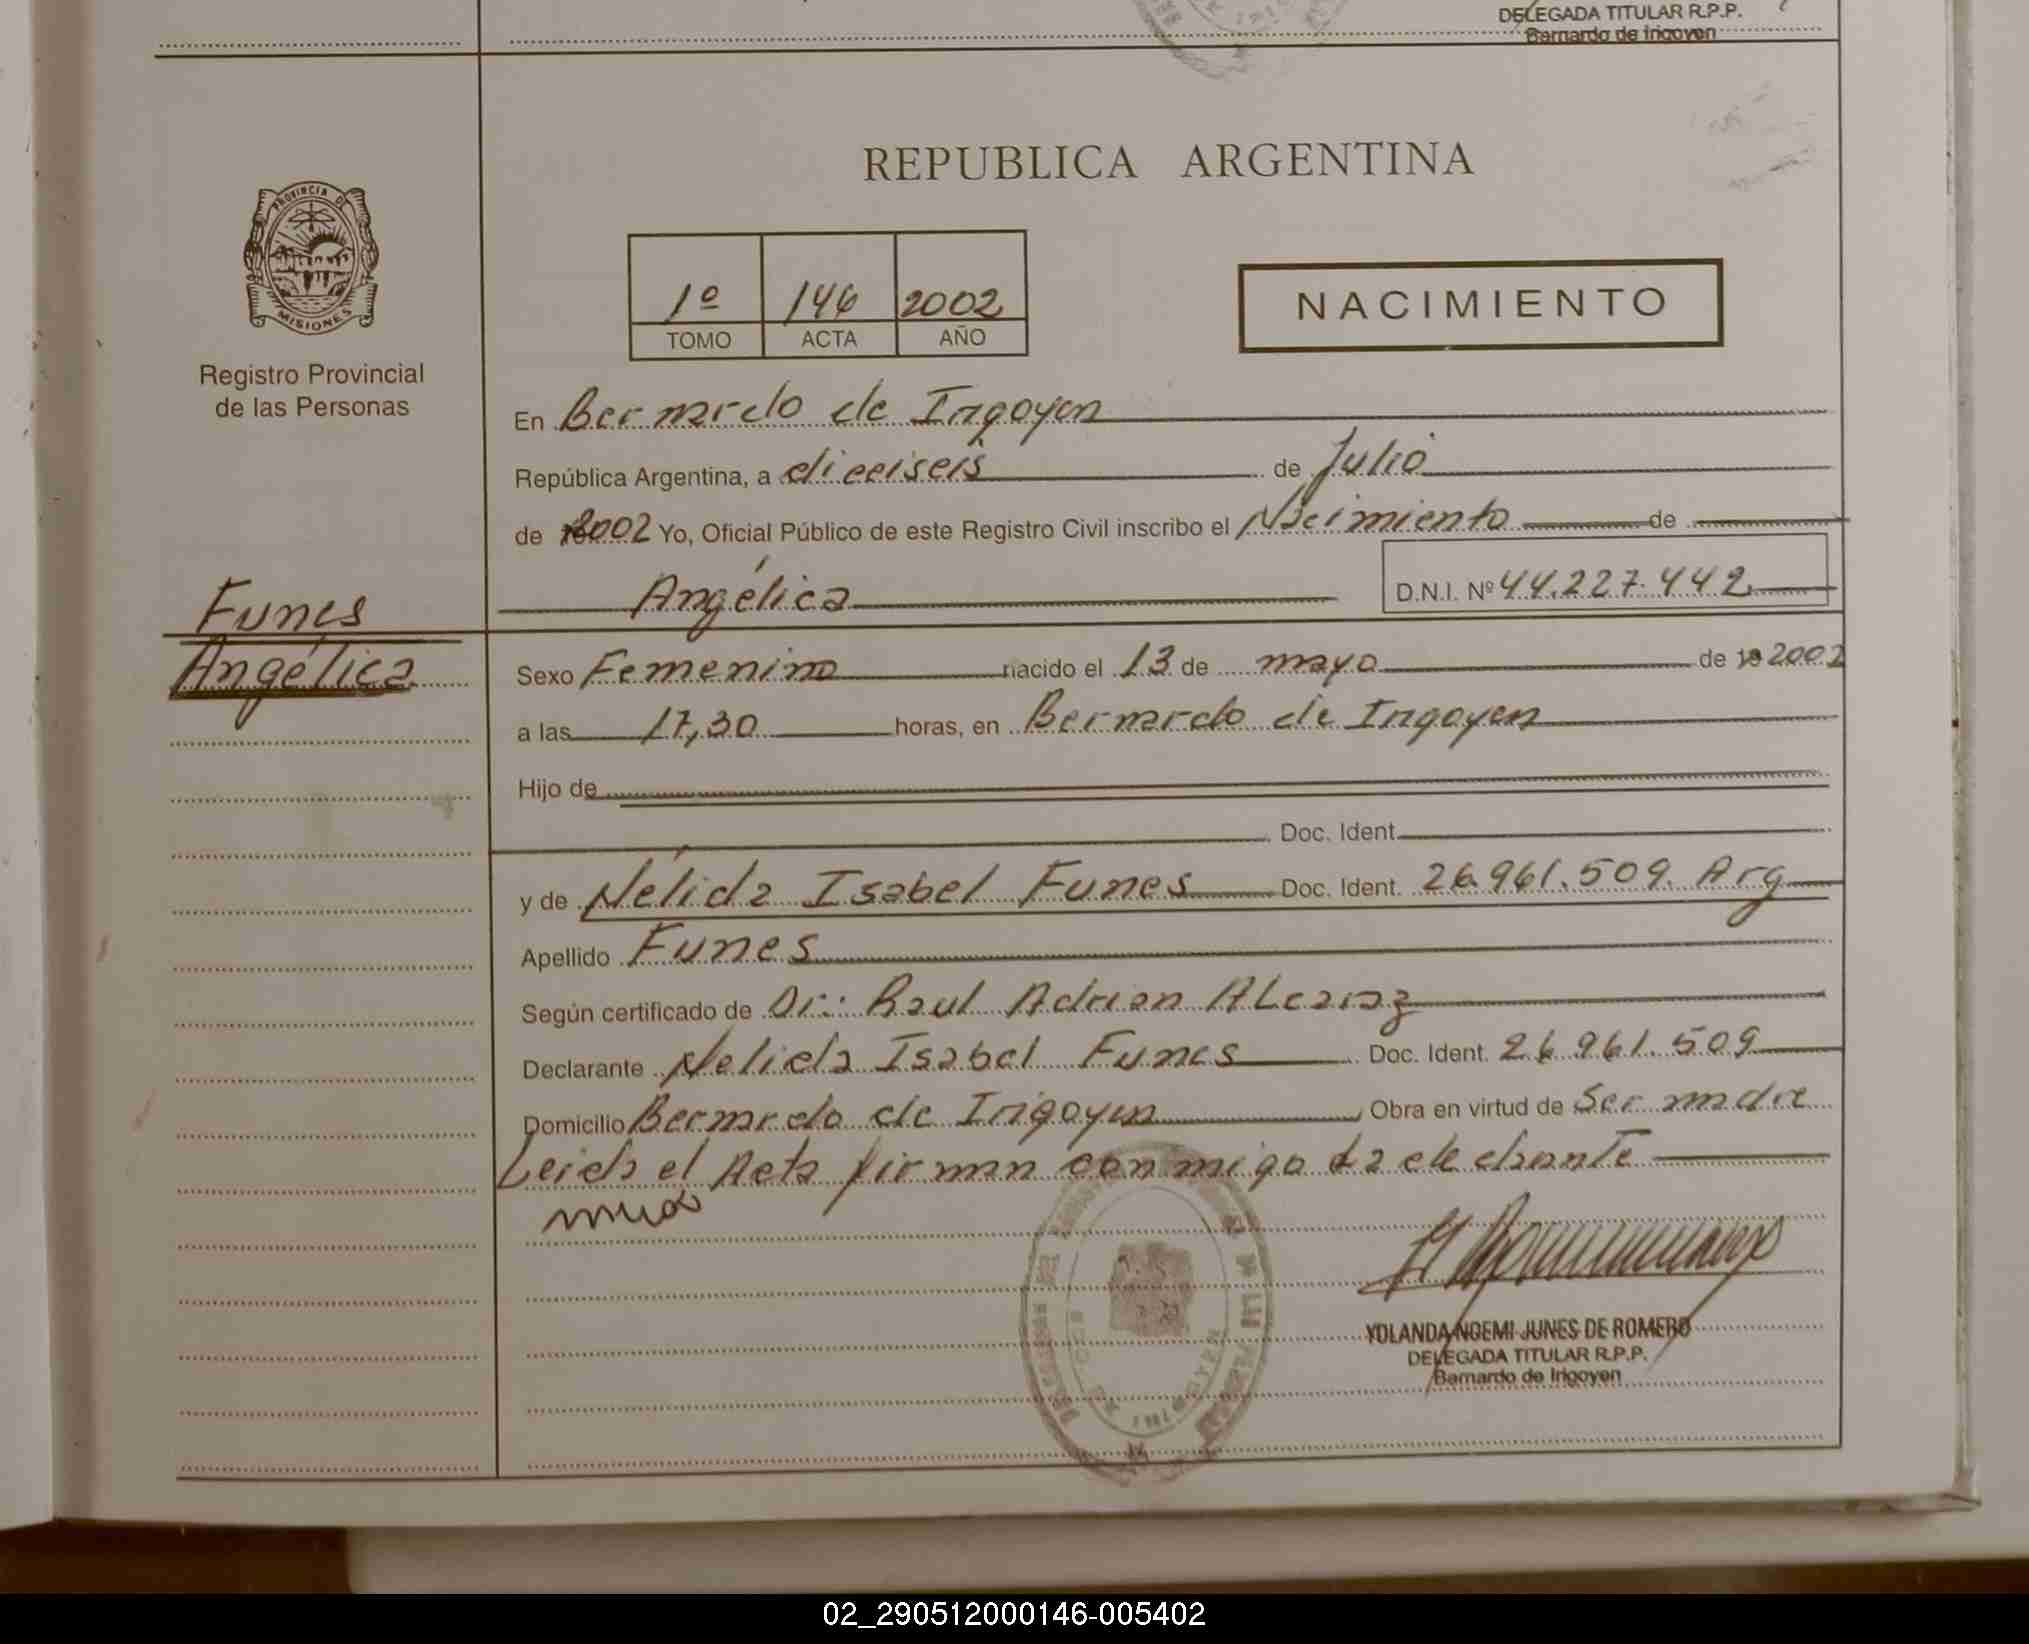 DELEGADA TITULAR R.P.P.
Bernardo de Irigoyen
PROVINCIA DE
MISIONES
Registro Provincial
de las Personas
REPUBLICA ARGENTINA
1º 146 2002
TOMO ACTA AÑO
NACIMIENTO
En Bernardo de Irigoyen
República Argentina, a dieciseis de Julio
de 2002 Yo, Oficial Público de este Registro Civil inscribo el Nacimiento de
Angélica D.N.I. Nº 44.227.442
Funes
Angélica
Sexo Femenino nacido el 13 de mayo de 19 2002
a las 17,30 horas, en Bernardo de Irigoyen
Hijo de
Doc. Ident.
y de Nélida Isabel Funes Doc. Ident. 26.961.509 Arg
Apellido Funes
Según certificado de Dr: Raul Adrian Alcaraz
Declarante Nelida Isabel Funes Doc. Ident. 26.961.509
Domicilio Bernardo de Irigoyen Obra en virtud de Ser madre
Leida el Acta firman conmigo la declarante
YOLANDA NOEMI JUNES DE ROMERO
DELEGADA TITULAR R.P.P.
Bernardo de Irigoyen
02_290512000146-005402